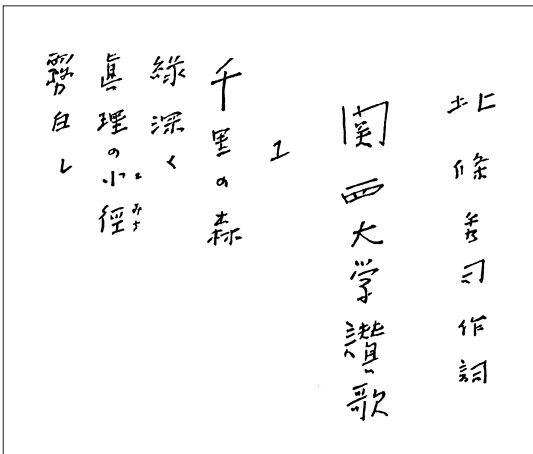 北條秀司作詞
関西大学讃歌
1
千里の森
緑深く
眞理の小徑
こみち
霧白し